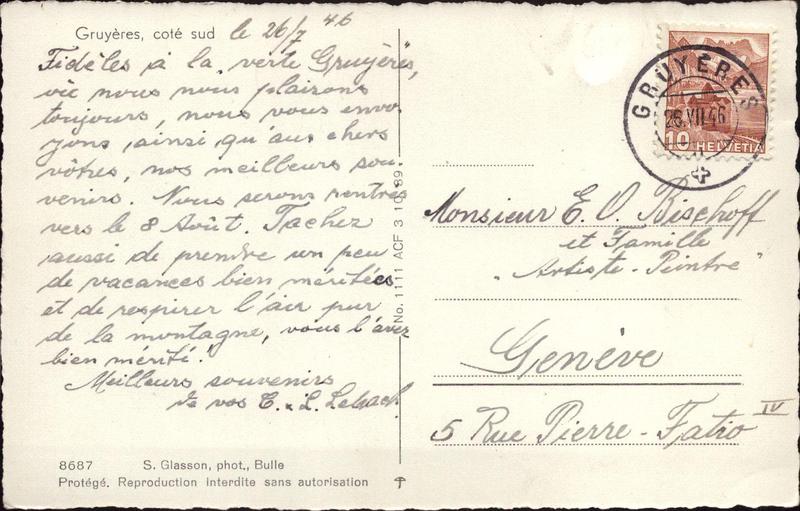 Gruyères, coté sud le 26/7 46
Fidèles à la "verte Gruyère",
où nous nous plaisons
toujours, nous vous envo-
yons ainsi qu'aux chers
vôtres, nos meilleurs sou-
venirs. Nous serons rentrés
vers le 8 Août. Tachez
aussi de prendre un peu
de vacances bien méritées
et de respirer l'air pur
de la montagne, vous l'avez
bien mérité!
Meilleurs souvenirs
de vos C. & L.
8687 S. Glasson, phot., Bulle
Protégé. Reproduction interdite sans autorisation
No. 1111 ACF 3 10 89
GRUYÈRES
26.VII.46
10 HELVETIA
Monsieur E. O. Bischoff
et Famille
"Artiste-Peintre"
Genève
5 Rue Pierre-Fatio IV